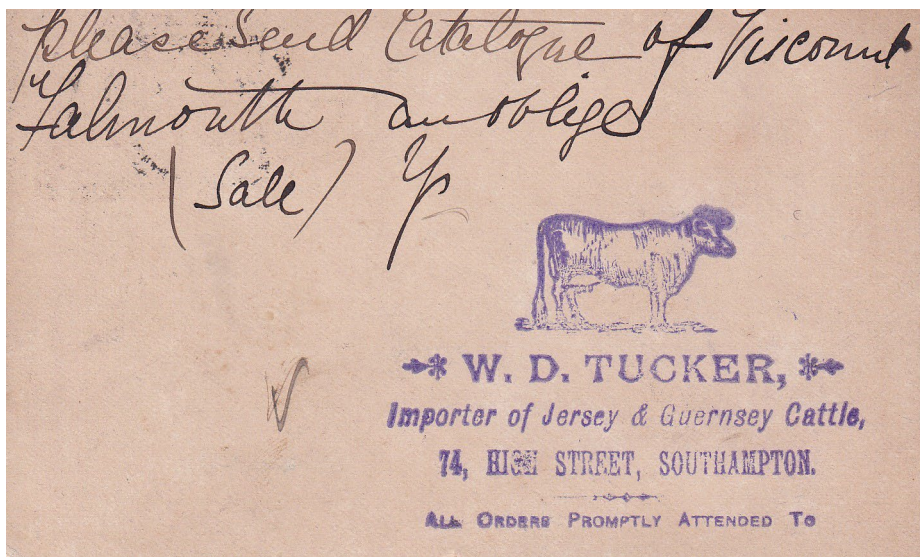 please Send Catalogue of Viscount
Falmouth an oblige
(Sale) Yr
W. D. TUCKER,
Importer of Jersey & Guernsey Cattle,
74, HIGH STREET, SOUTHAMPTON.
ALL ORDERS PROMPTLY ATTENDED TO